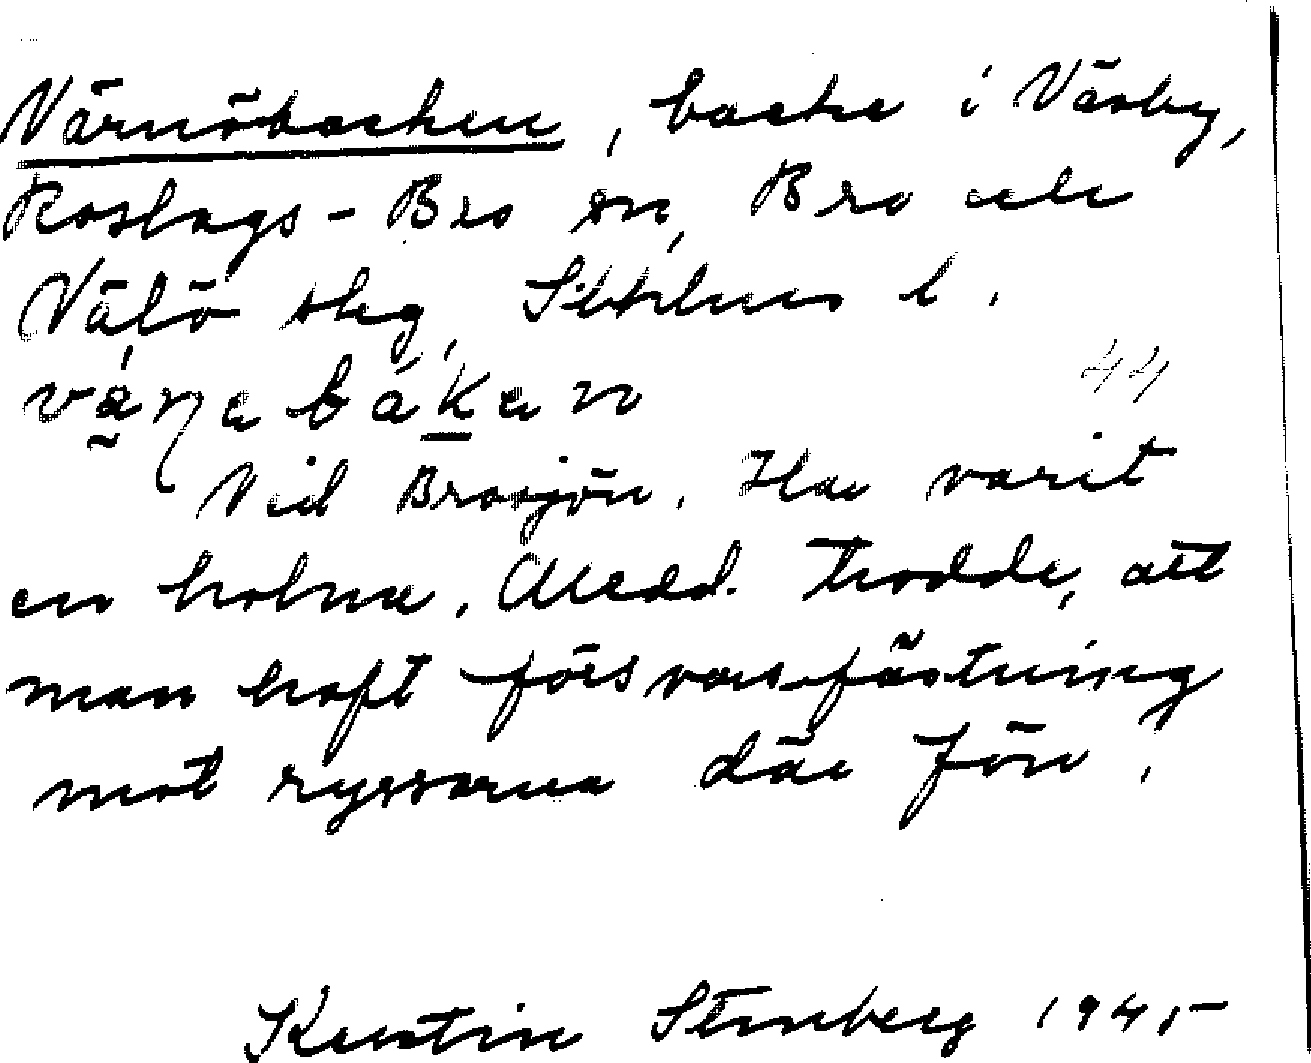 Värnöbacken, backe i Väsby,
Roslags-Bro sn, Bro och
Vätö skg, Sthlms l.
Vid Brosjön. Har varit
en holme. Medd. trodde, att
man haft försvarsfästning
mot ryssarna där förr.
44
Kerstin Stenberg 1945